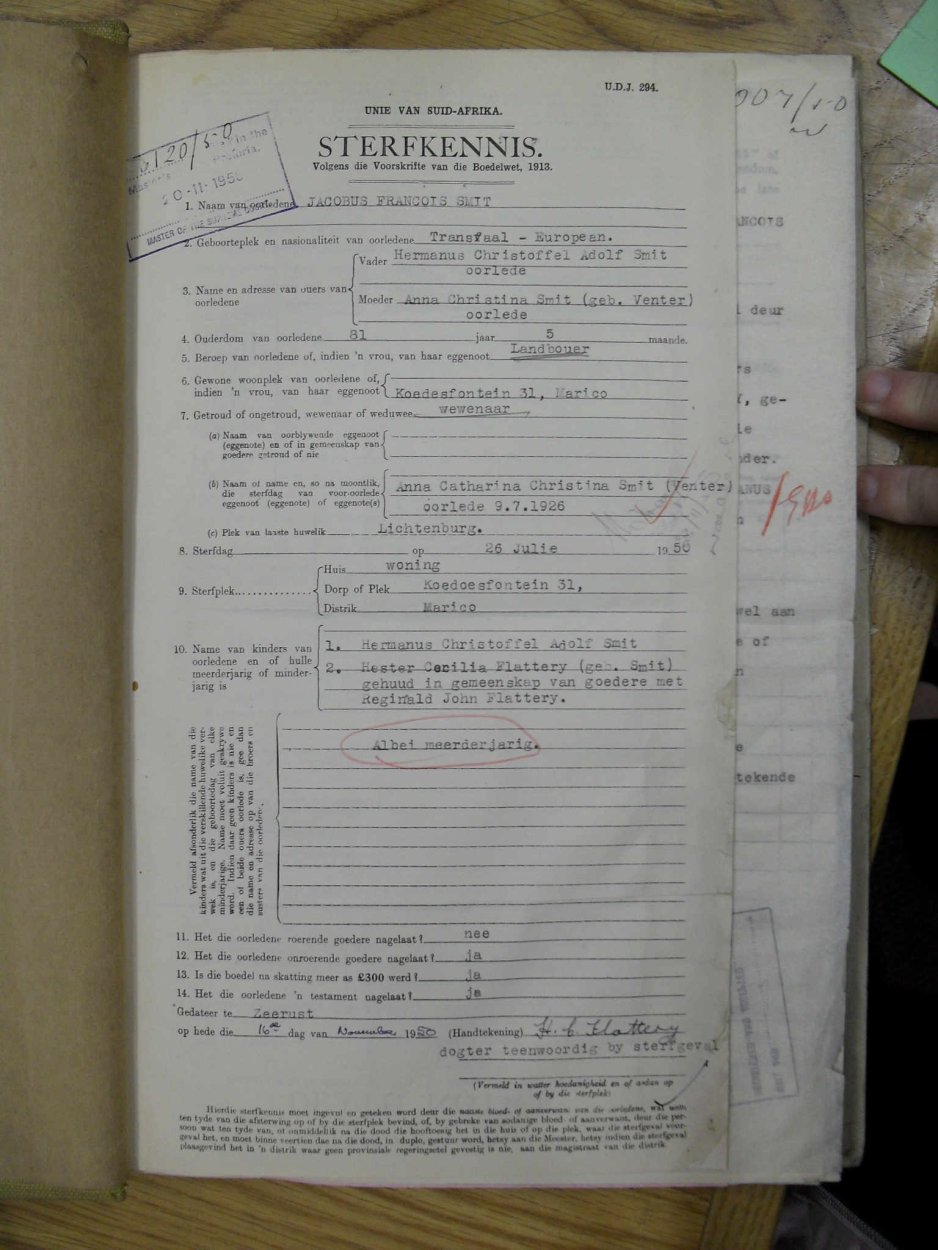 U.D.J. 294.
UNIE VAN SUID-AFRIKA.
STERFKENNIS.
Volgens die Voorskrifte van die Boedelwet, 1913.
20-11-1950
MASTER OF THE SUPREME COURT
1. Naam van oorledene JACOBUS FRANCOIS SMIT
2. Geboorteplek en nasionaliteit van oorledene Transfaal - European.
3. Name en adresse van ouers van oorledene
Vader Hermanus Christoffel Adolf Smit
oorlede
Moeder Anna Christina Smit (geb. Venter)
oorlede
4. Ouderdom van oorledene 81 jaar 5 maande.
5. Beroep van oorledene of, indien 'n vrou, van haar eggenoot Landbouer
6. Gewone woonplek van oorledene of,
indien 'n vrou, van haar eggenoot Koedesfontein 31, Marico
7. Getroud of ongetroud, wewenaar of weduwee wewenaar
(a) Naam van oorblywende eggenoot
(eggenote) en of in gemeenskap van
goedere getroud of nie
(b) Naam of name en, so na moontlik,
die sterfdag van voor-oorlede
eggenoot (eggenote) of eggenote(s)
Anna Catharina Christina Smit (Venter)
oorlede 9.7.1926
(c) Plek van laaste huwelik Lichtenburg.
8. Sterfdag op 26 Julie 1950
9. Sterfplek
Huis woning
Dorp of Plek Koedoesfontein 31,
Distrik Marico
10. Name van kinders van
oorledene en of hulle
meerderjarig of minder-
jarig is
1. Hermanus Christoffel Adolf Smit
2. Hester Cecilia Flattery (geb. Smit)
gehuud in gemeenskap van goedere met
Reginald John Flattery.
Albei meerderjarig.
Vermeld afsonderlik die name van die
kinders wat uit die verskillende huwelike ver-
wek is, en die geboortedag van elke
minderjarige. Name moet voluit geskrywe
word. Indien daar geen kinders is nie en
een of beide ouers oorlede is, gee dan
die name en adresse op van die broers en
susters van die oorledene.
11. Het die oorledene roerende goedere nagelaat? nee
12. Het die oorledene onroerende goedere nagelaat? ja
13. Is die boedel na skatting meer as £300 werd? ja
14. Het die oorledene 'n testament nagelaat? ja
Gedateer te Zeerust
op hede die 16de dag van November 1950 (Handtekening) H. C. Flattery
dogter teenwoordig by sterfgeval
(Vermeld in watter hoedanigheid en of anban op
of by die sterfplek)
Hierdie sterfkennis moet ingevul en geteken word deur die naaste bloed- of aanverwant van die oorledene, wat
ten tyde van die afsterwing op of by die sterfplek bevind, of, by gebreke van sodanige bloed- of aanverwant, deur die per-
soon wat ten tyde van, of onmiddellik na die dood die hooftoesig het in die huis of op die plek, waar die sterfgeval voor-
geval het, en moet binne veertien dae na die dood, in duplo, gestuur word, hetsy aan die Meester, hetsy indien die sterfgeval
plaasgevind het in 'n distrik waar geen provinsiale regeringsetel gevestig is nie, aan die magistraat van die distrik.
NCOIS
deur
ge-
der.
wel aan
e of
tekende